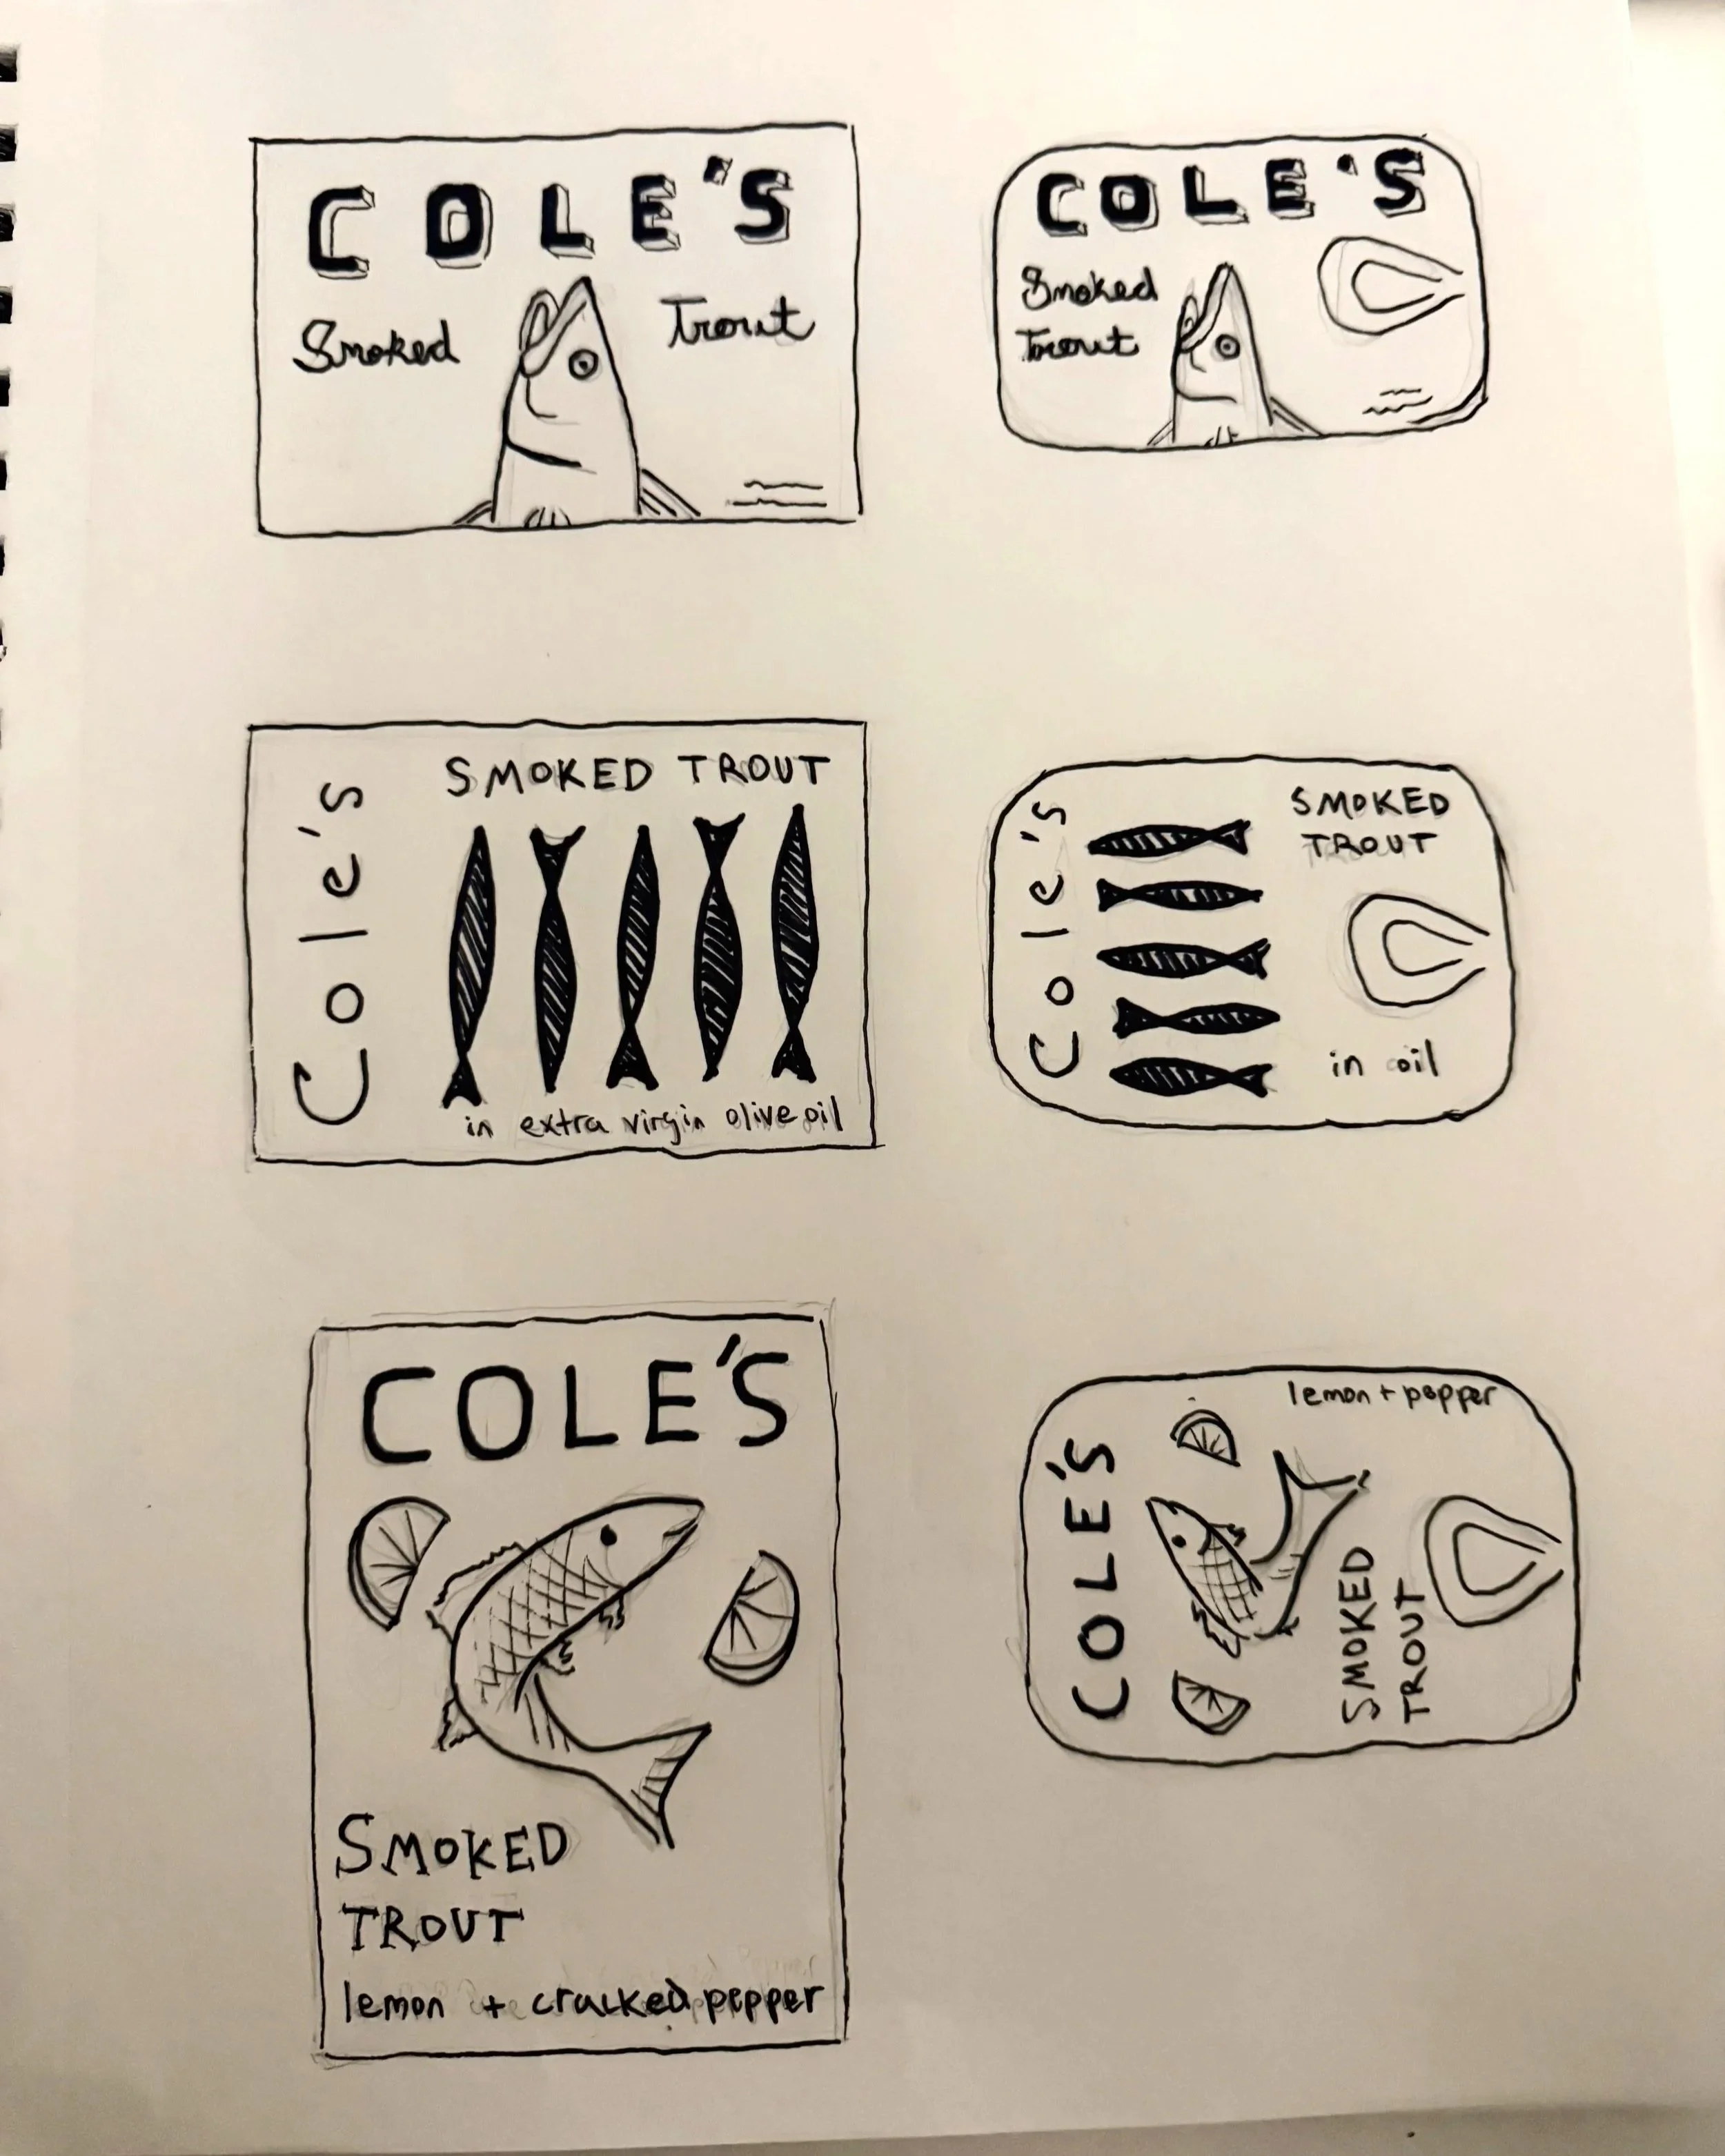 COLE'S
Smoked Trout
COLE'S
Smoked
Trout
Cole's
SMOKED TROUT
in extra virgin olive oil
Cole's
SMOKED
TROUT
in oil
COLE'S
SMOKED
TROUT
lemon + cracked pepper
lemon + pepper
COLE'S
SMOKED
TROUT